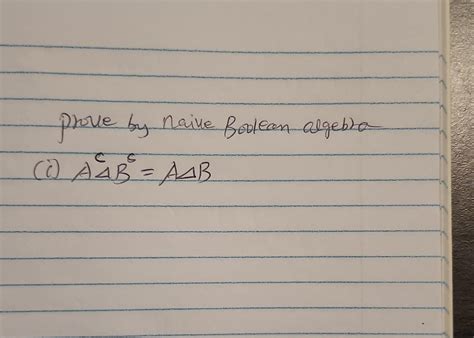 prove by naive Boolean algebra
(i) Aᶜ△Bᶜ = A△B